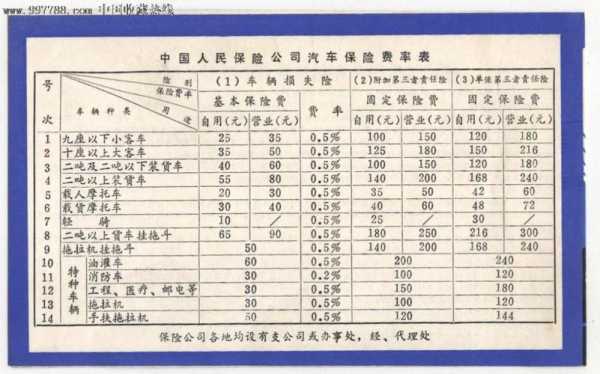 www.997788.com 中国收藏热线
中国人民保险公司汽车保险费率表
号次 险别 保险费率 用途 车辆种类 (1)车辆损失险 (2)附加第三者责任险 (3)单保第三者责任险
基本保险费 费率 固定保险费 固定保险费
自用(元) 营业(元) 自用(元) 营业(元) 自用(元) 营业(元)
1 九座以下小客车 25 35 0.5% 100 150 120 180
2 十座以上大客车 35 50 0.5% 125 180 150 216
3 二吨及二吨以下装货车 40 60 0.5% 100 150 120 180
4 二吨以上装货车 55 80 0.5% 140 200 168 240
5 载人摩托车 20 30 0.5% 35 50 42 60
6 载货摩托车 30 40 0.5% 40 60 48 72
7 轻骑 10 / 0.5% 25 / 30 /
8 二吨以上货车挂拖斗 65 90 0.5% 180 250 216 300
9 拖拉机挂拖斗 50 0.5% 140 200 168 240
特种车辆
10 油灌车 60 0.5% 200 240
11 消防车 30 0.2% 100 120
12 工程、医疗、邮电等 30 0.5% 150 180
13 拖拉机 30 0.5% 100 120
14 手扶拖拉机 50 0.5% 120 144
保险公司各地均设有支公司或办事处，经、代理处